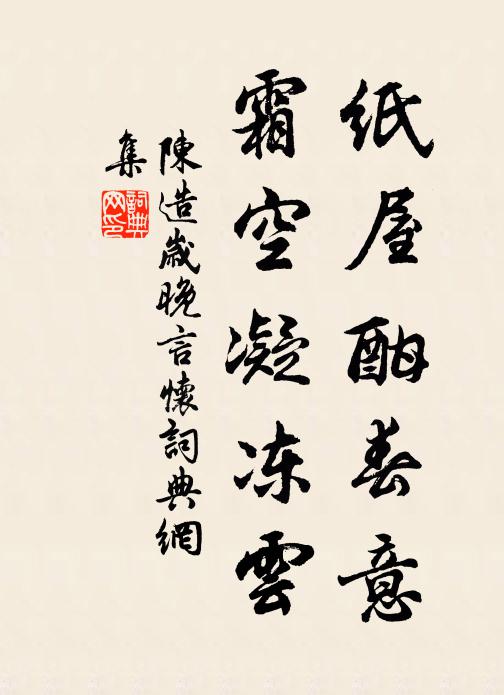 紙屋酣春意
霜空凝冻雲
陳造嵗晚言懷詞典網
集
詞典
网印